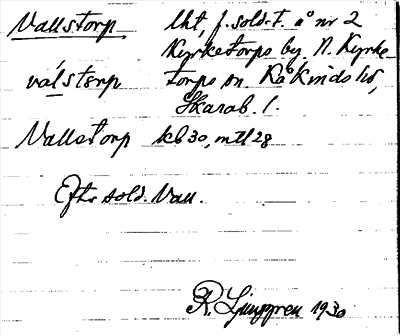 Vallstorp lht, f. sold.-t. å nr 2
Kyrketorps by. N. Kyrke-
válstɔrp torps sn. Kåkinds hd,
Skarab. l.
Vallstorp kb 30, mtl 28
Efter sold. Vall.
R. Ljunggren 1930